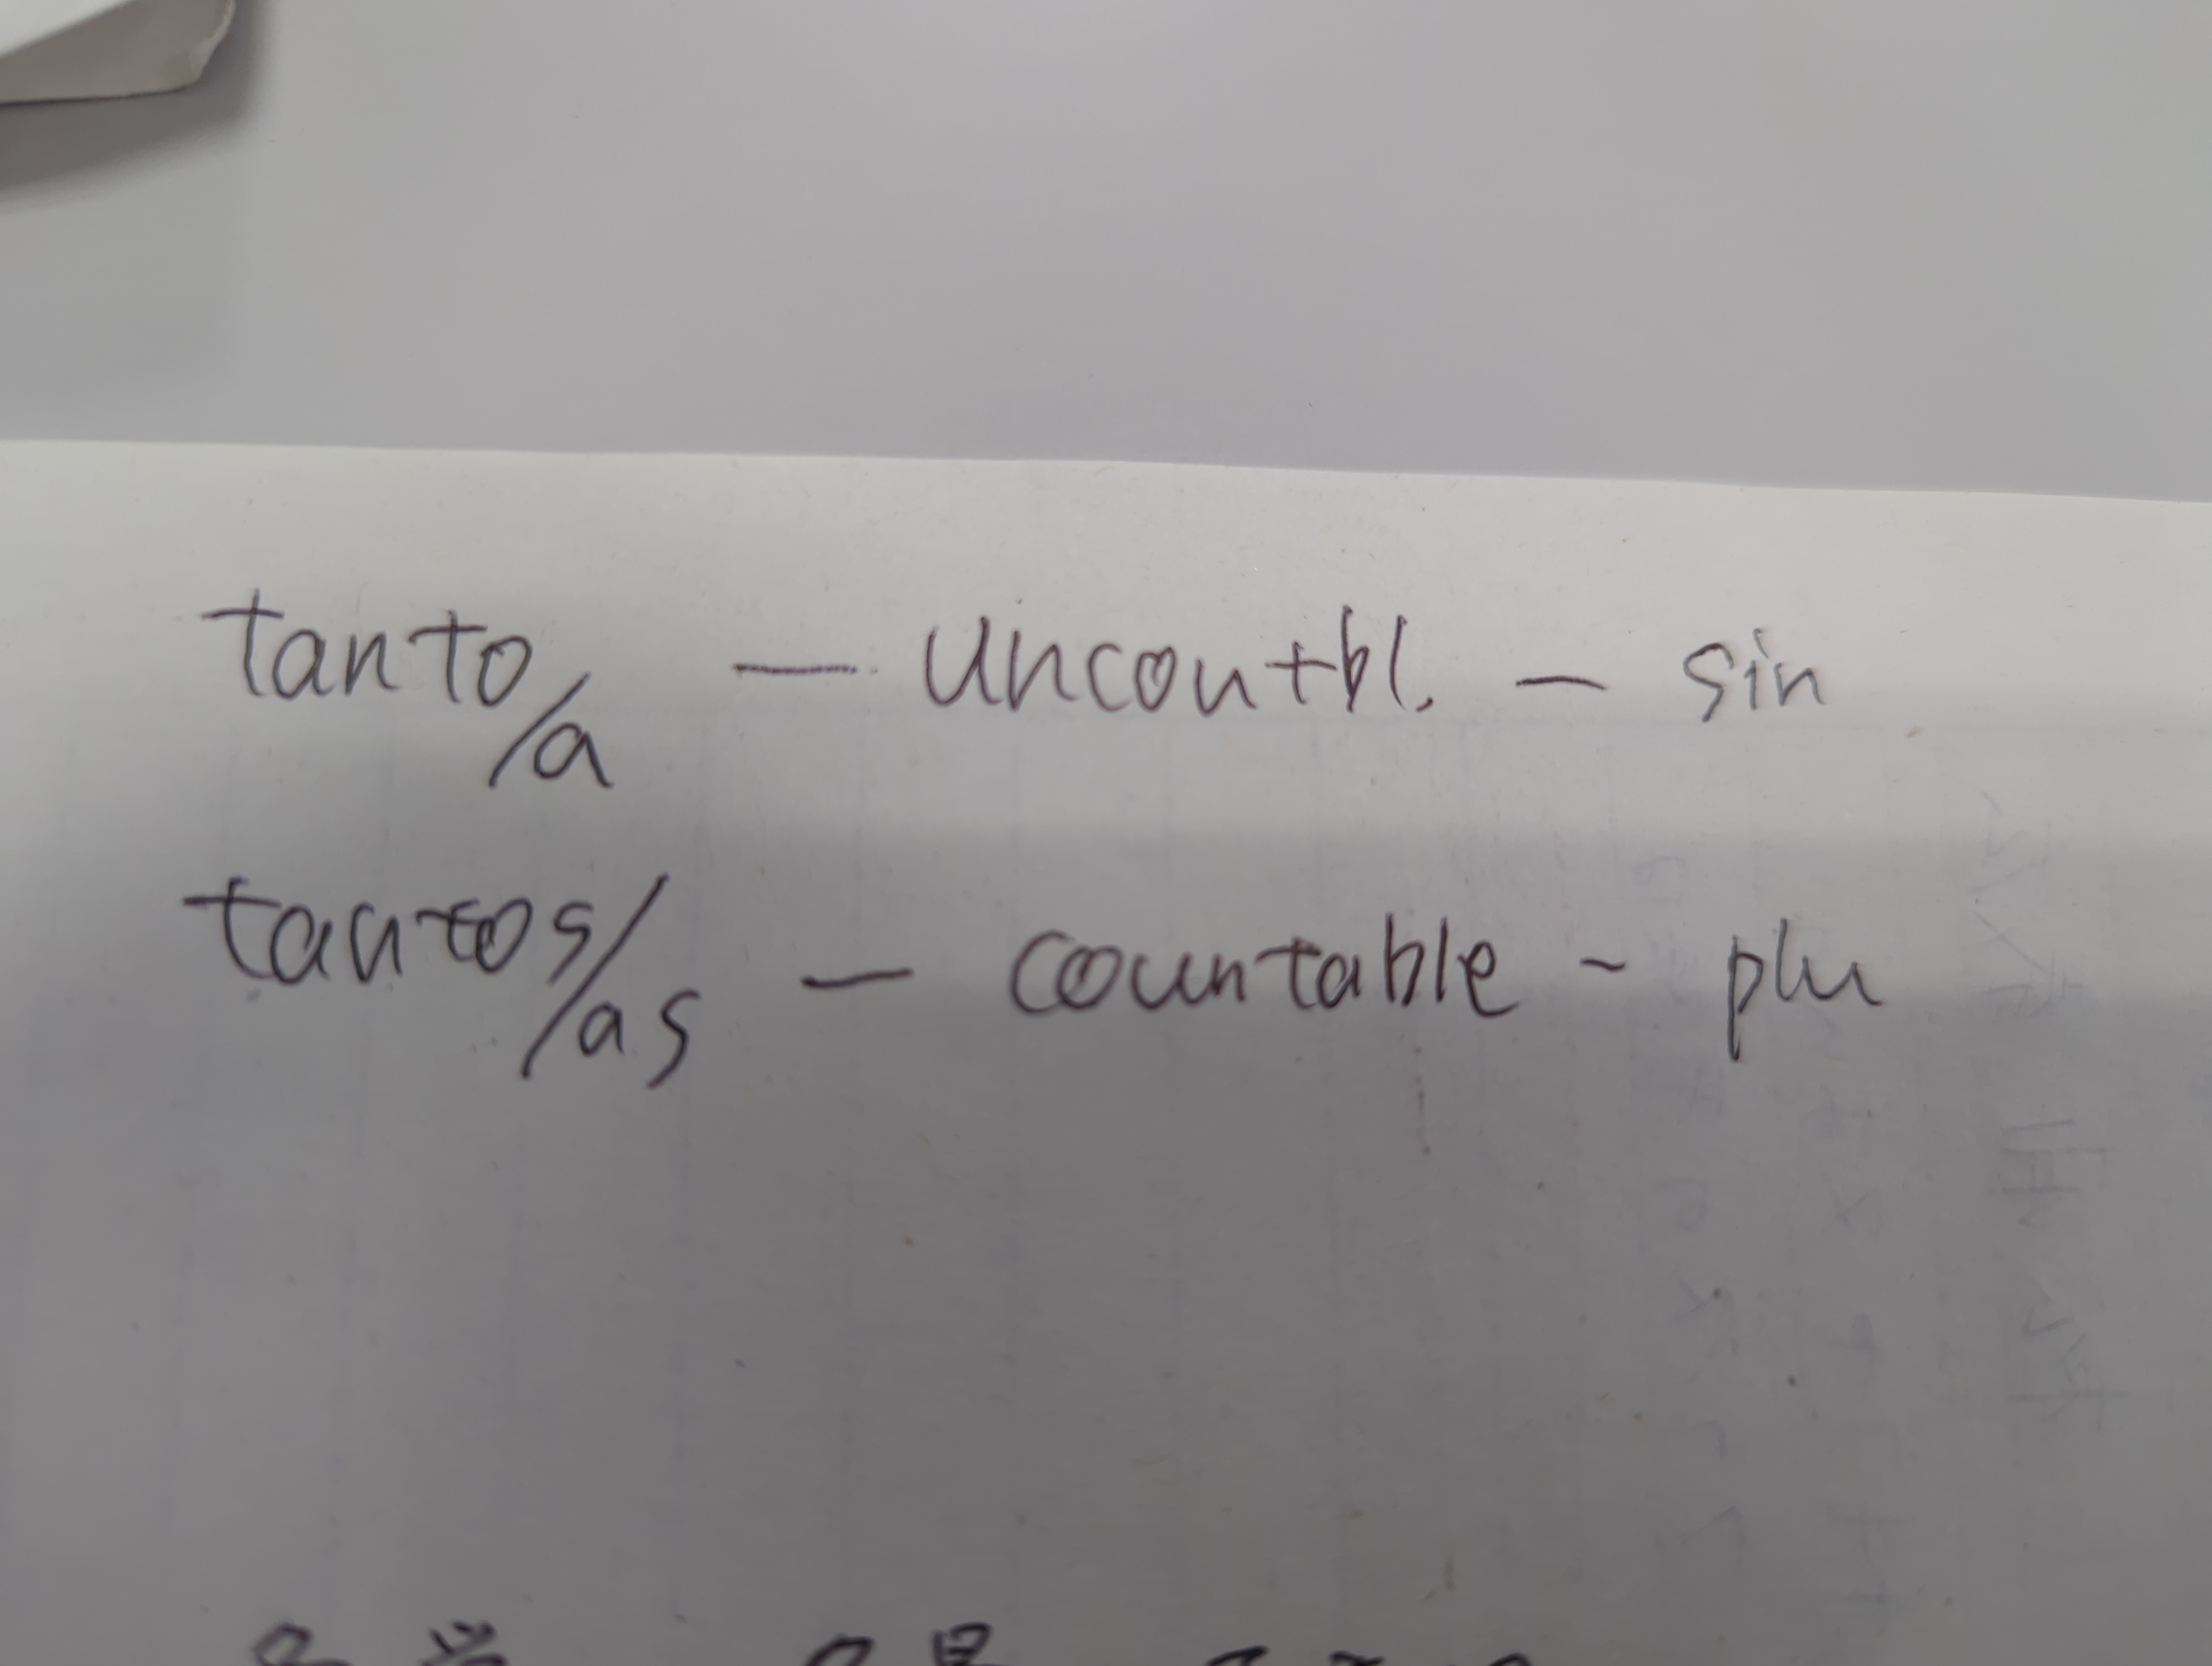 tanto/a — uncountbl. — sin
tantos/as — countable - plu